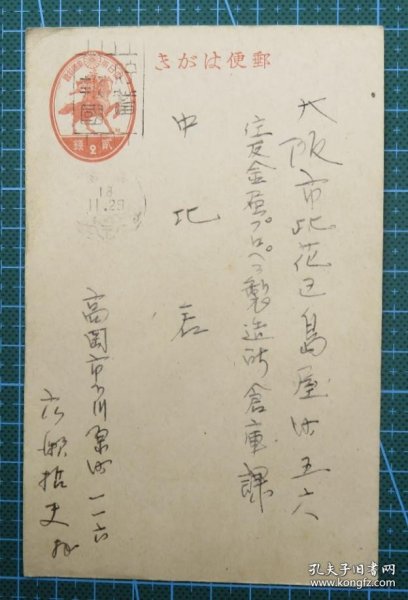 郵便はがき
大阪市此花区島屋町五六
住友金属プロペラ製造所倉庫課
中北君
高岡市小川原町一一六
貳錢
18
11.28
孔夫子旧书网
www.kongfz.com